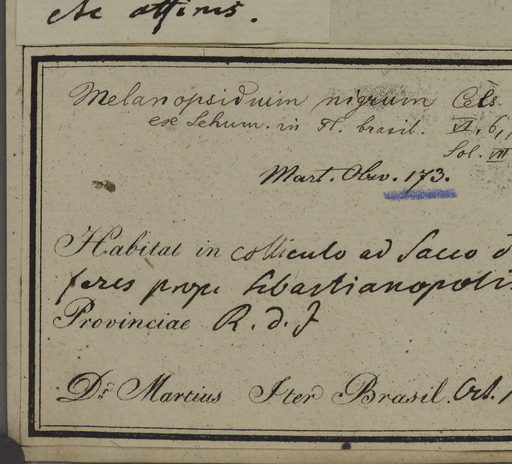 etc affinis.
Melanopsidium nigrum Cels.
ex Schum. in Fl. brasil. VI. 6, 1
Sol. VII
Mart. Obs. 173.
Habitat in colliculo ad Sacco d
feres prope Sebastianopolis
Provinciae R. d. J
Dr. Martius Iter Brasil. Oct. 1